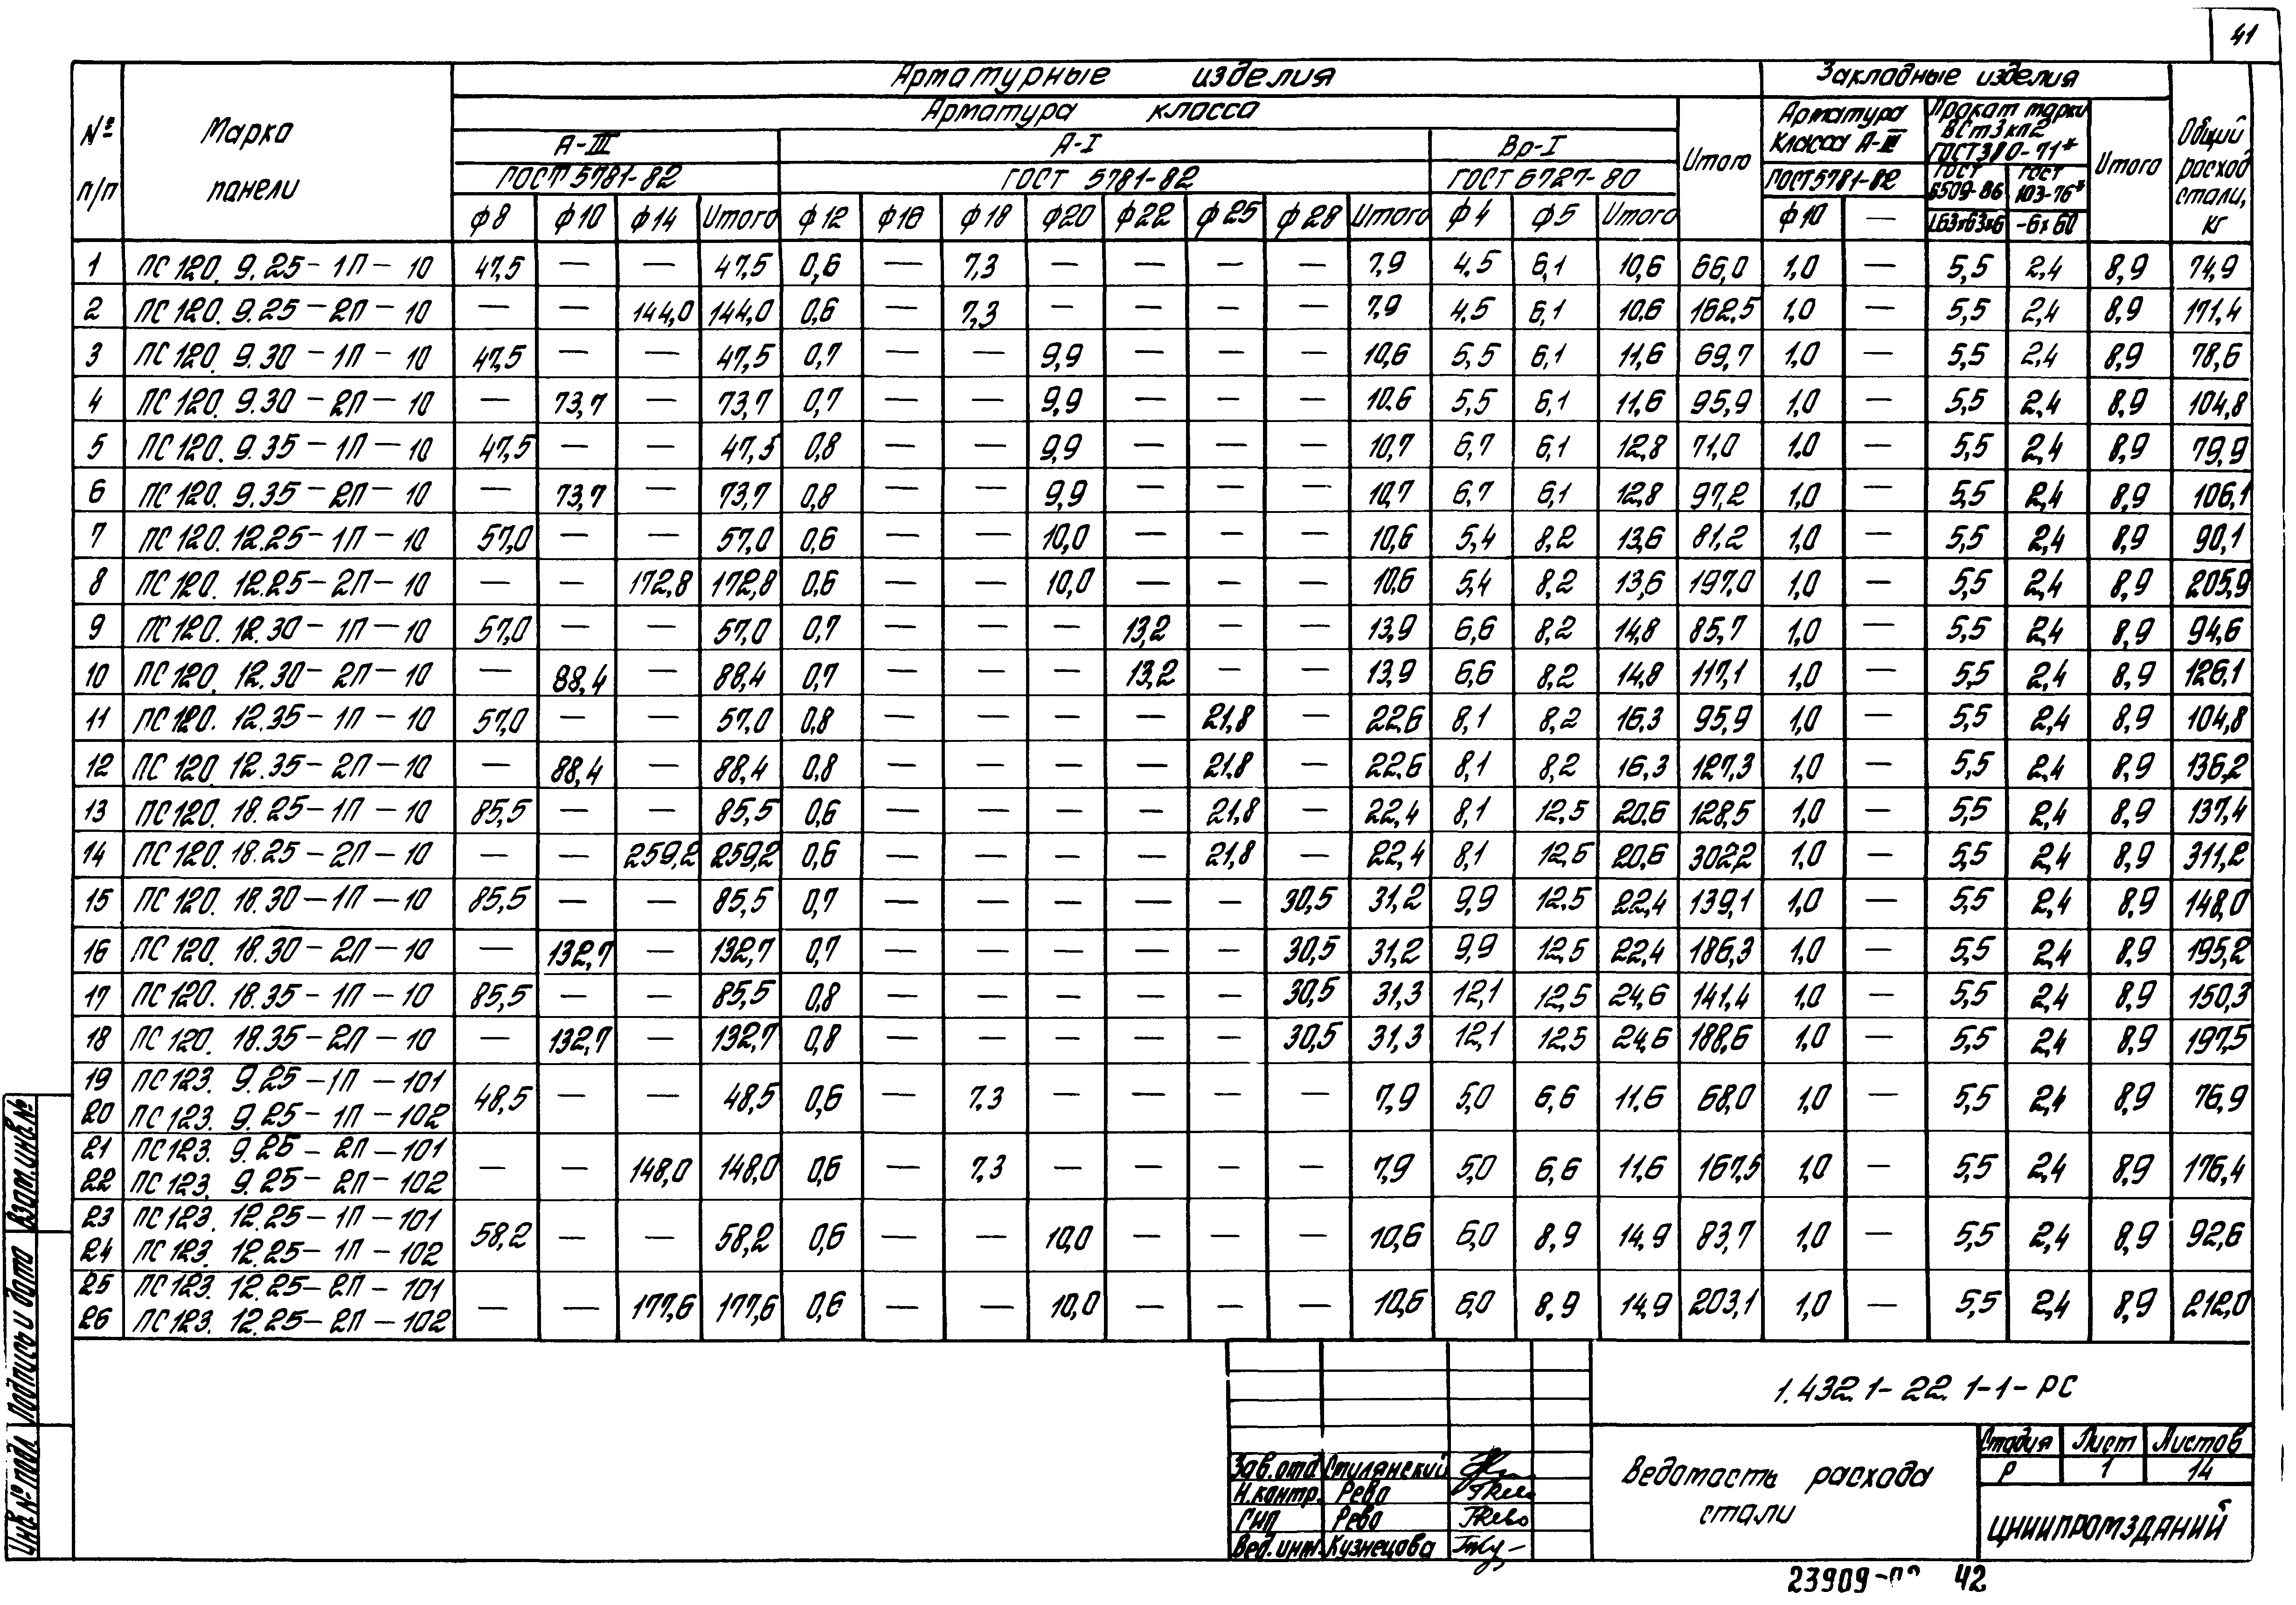 41
Арматурные изделия
Закладные изделия
№ п/п
Марка панели
Арматура класса
Итого
Арматура класса А-III
Прокат марки ВСт3кп2 ГОСТ 380-71*
Итого
Общий расход стали, кг
А-III
А-I
Вр-I
ГОСТ 5781-82
ГОСТ 5781-82
ГОСТ 6727-80
ГОСТ 5781-82
ГОСТ 8509-86
ГОСТ 103-76*
ф8 ф10 ф14 Итого ф12 ф16 ф18 ф20 ф22 ф25 ф28 Итого ф4 ф5 Итого ф10 — L63x63x6 -6x60
1 ПС 120. 9.25-1П-10 47,5 — — 47,5 0,6 — 7,3 — — — — 7,9 4,5 6,1 10,6 66,0 1,0 — 5,5 2,4 8,9 74,9
2 ПС 120. 9.25-2П-10 — — 144,0 144,0 0,6 — 7,3 — — — — 7,9 4,5 6,1 10,6 162,5 1,0 — 5,5 2,4 8,9 171,4
3 ПС 120. 9.30-1П-10 47,5 — — 47,5 0,7 — — 9,9 — — — 10,6 5,5 6,1 11,6 69,7 1,0 — 5,5 2,4 8,9 78,6
4 ПС 120. 9.30-2П-10 — 73,7 — 73,7 0,7 — — 9,9 — — — 10,6 5,5 6,1 11,6 95,9 1,0 — 5,5 2,4 8,9 104,8
5 ПС 120. 9.35-1П-10 47,5 — — 47,5 0,8 — — 9,9 — — — 10,7 6,7 6,1 12,8 71,0 1,0 — 5,5 2,4 8,9 79,9
6 ПС 120. 9.35-2П-10 — 73,7 — 73,7 0,8 — — 9,9 — — — 10,7 6,7 6,1 12,8 97,2 1,0 — 5,5 2,4 8,9 106,1
7 ПС 120. 12.25-1П-10 57,0 — — 57,0 0,6 — — 10,0 — — — 10,6 5,4 8,2 13,6 81,2 1,0 — 5,5 2,4 8,9 90,1
8 ПС 120. 12.25-2П-10 — — 172,8 172,8 0,6 — — 10,0 — — — 10,6 5,4 8,2 13,6 197,0 1,0 — 5,5 2,4 8,9 205,9
9 ПС 120. 12.30-1П-10 57,0 — — 57,0 0,7 — — — 13,2 — — 13,9 6,6 8,2 14,8 85,7 1,0 — 5,5 2,4 8,9 94,6
10 ПС 120. 12.30-2П-10 — 88,4 — 88,4 0,7 — — — 13,2 — — 13,9 6,6 8,2 14,8 117,1 1,0 — 5,5 2,4 8,9 126,1
11 ПС 120. 12.35-1П-10 57,0 — — 57,0 0,8 — — — — 21,8 — 22,6 8,1 8,2 16,3 95,9 1,0 — 5,5 2,4 8,9 104,8
12 ПС 120 12.35-2П-10 — 88,4 — 88,4 0,8 — — — — 21,8 — 22,6 8,1 8,2 16,3 127,3 1,0 — 5,5 2,4 8,9 136,2
13 ПС 120. 18.25-1П-10 85,5 — — 85,5 0,6 — — — — 21,8 — 22,4 8,1 12,5 20,6 128,5 1,0 — 5,5 2,4 8,9 137,4
14 ПС 120. 18.25-2П-10 — — 259,2 259,2 0,6 — — — — 21,8 — 22,4 8,1 12,5 20,6 302,2 1,0 — 5,5 2,4 8,9 311,2
15 ПС 120. 18.30-1П-10 85,5 — — 85,5 0,7 — — — — — 30,5 31,2 9,9 12,5 22,4 139,1 1,0 — 5,5 2,4 8,9 148,0
16 ПС 120. 18.30-2П-10 — 132,7 — 132,7 0,7 — — — — — 30,5 31,2 9,9 12,5 22,4 186,3 1,0 — 5,5 2,4 8,9 195,2
17 ПС 120. 18.35-1П-10 85,5 — — 85,5 0,8 — — — — — 30,5 31,3 12,1 12,5 24,6 141,4 1,0 — 5,5 2,4 8,9 150,3
18 ПС 120. 18.35-2П-10 — 132,7 — 132,7 0,8 — — — — — 30,5 31,3 12,1 12,5 24,6 188,6 1,0 — 5,5 2,4 8,9 197,5
19 ПС 123. 9.25-1П-101
20 ПС 123. 9.25-1П-102
48,5 — — 48,5 0,6 — 7,3 — — — — 7,9 5,0 6,6 11,6 68,0 1,0 — 5,5 2,4 8,9 76,9
21 ПС 123. 9.25-2П-101
22 ПС 123. 9.25-2П-102
— — 148,0 148,0 0,6 — 7,3 — — — — 7,9 5,0 6,6 11,6 167,5 1,0 — 5,5 2,4 8,9 176,4
23 ПС 123. 12.25-1П-101
24 ПС 123. 12.25-1П-102
58,2 — — 58,2 0,6 — — 10,0 — — — 10,6 6,0 8,9 14,9 83,7 1,0 — 5,5 2,4 8,9 92,6
25 ПС 123. 12.25-2П-101
26 ПС 123. 12.25-2П-102
— — 177,6 177,6 0,6 — — 10,0 — — — 10,6 6,0 8,9 14,9 203,1 1,0 — 5,5 2,4 8,9 212,0
Взам. инв. №
Подпись и дата
Инв. № подл.
1.432.1-22.1-1-РС
Зав. отд. Стилянский
Н. контр. Рево
ГИП Рево
Вед. инж. Кузнецова
Ведомость расхода стали
Стадия Лист Листов
Р 1 14
ЦНИИПРОМЗДАНИЙ
23909- 42